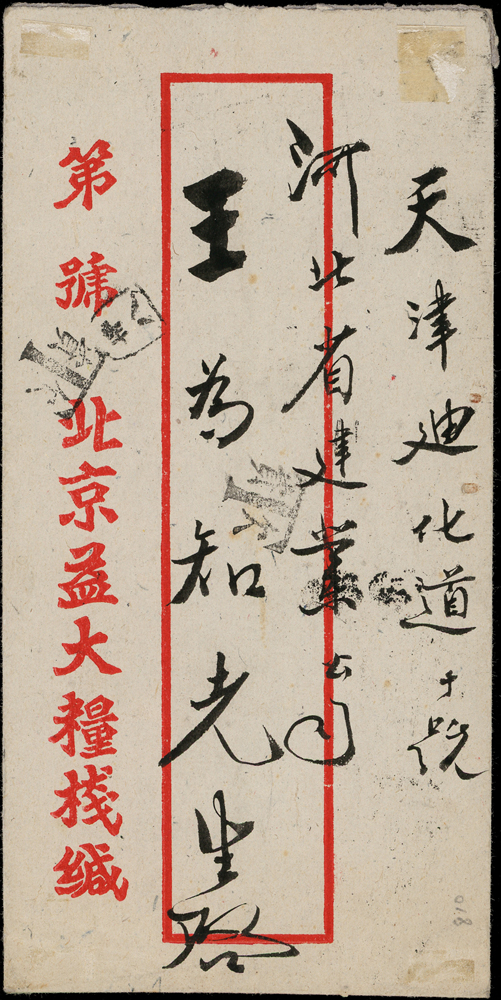 天津迪化道十號
河北省建業公司
王為知先生啓
第 號 北京益大糧棧緘